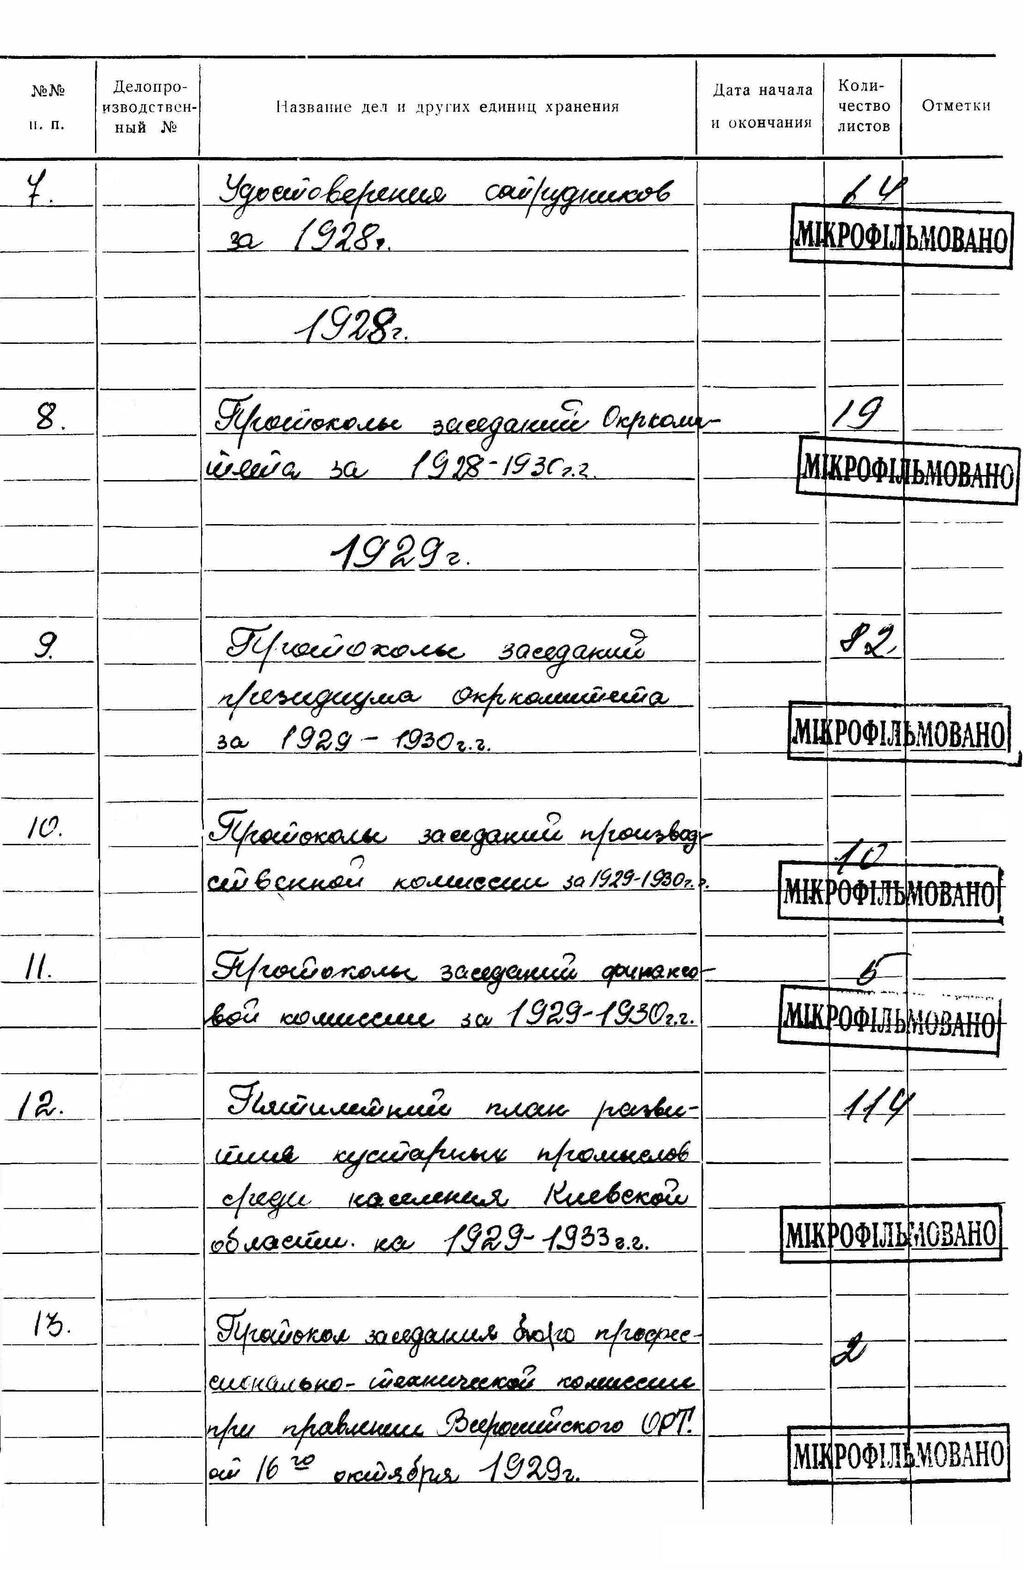 №№ п. п.
Делопроизводственный №
Название дел и других единиц хранения
Дата начала и окончания
Количество листов
Отметки
7. Удостоверения сотрудников 64
за 1928г.
МІКРОФІЛЬМОВАНО
1928г.
8. Протоколы заседаний Окркоми- 19
тета за 1928-1930г.г.
МІКРОФІЛЬМОВАНО
1929г.
9. Протоколы заседаний 82
президиума окркомитета
за 1929-1930г.г.
МІКРОФІЛЬМОВАНО
10. Протоколы заседаний производ- 10
ственной комиссии за 1929-1930г.г.
МІКРОФІЛЬМОВАНО
11. Протоколы заседаний финансо- 5
вой комиссии за 1929-1930г.г.
МІКРОФІЛЬМОВАНО
12. Пятилетний план разви- 114
тия кустарных промыслов
среди населения Киевской
области. на 1929-1933г.г.
МІКРОФІЛЬМОВАНО
13. Протокол заседания бюро професс- 2
сионально-технической комиссии
при правлении Всероссийского ОРТ.
от 16го октября 1929г.
МІКРОФІЛЬМОВАНО